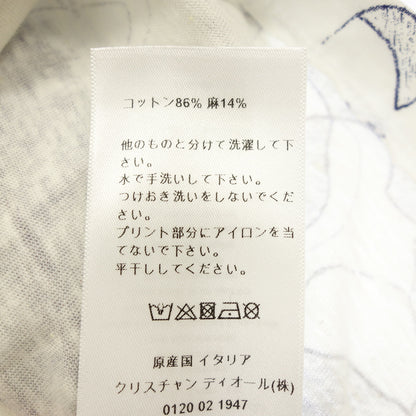 コットン86% 麻14%
他のものと分けて洗濯して下
さい。
水で手洗いして下さい。
つけおき洗いをしないでくだ
さい。
プリント部分にアイロンを当
てないで下さい。
平干ししてください。
原産国 イタリア
クリスチャン ディオール(株)
0120 02 1947